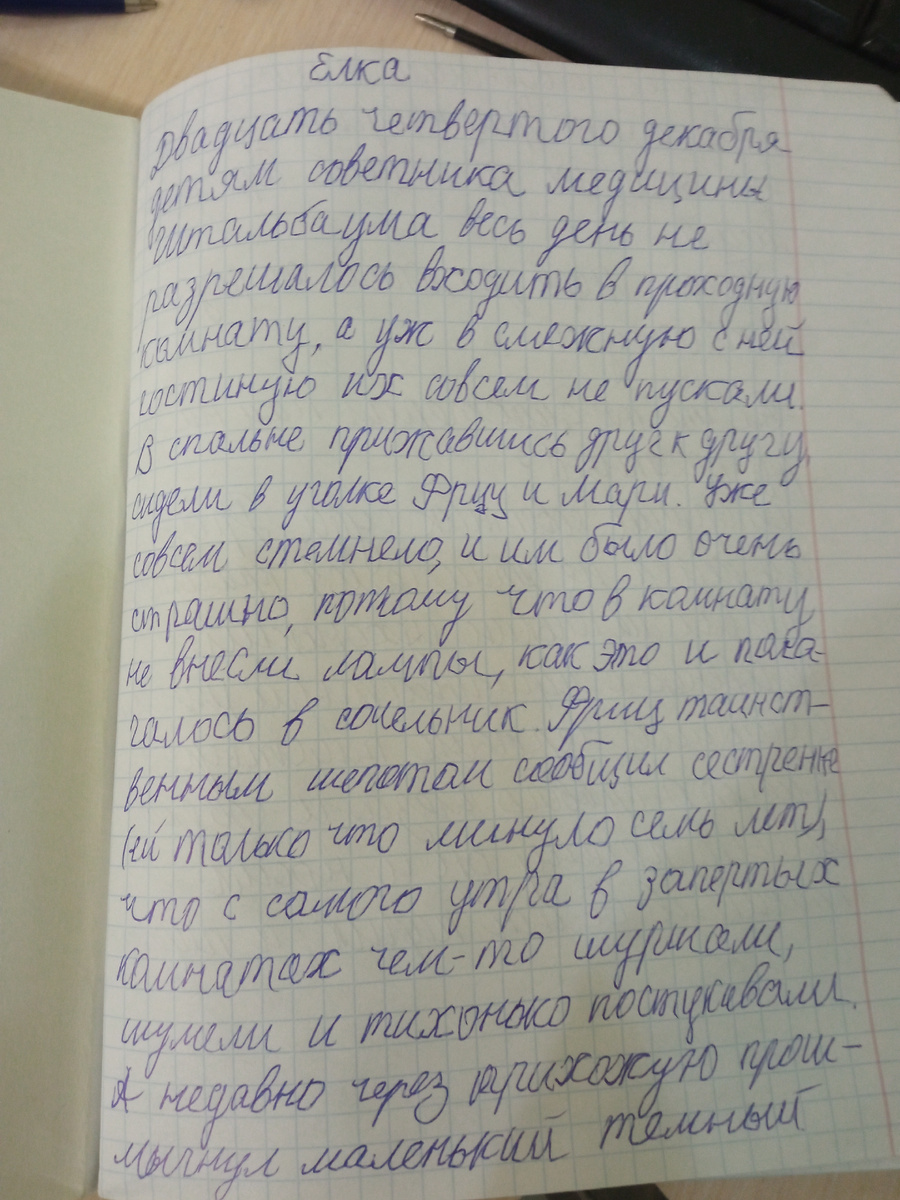 Елка
Двадцать четвертого декабря
детям советника медицины
Штальбаума весь день не
разрешалось входить в проходную
комнату, а уж в смежную с ней
гостиную их совсем не пускали.
В спальне прижавшись друг к другу,
сидели в уголке Фриц и Мари. Уже
совсем стемнело, и им было очень
страшно, потому что в комнату
не внесли лампы, как это и пола-
галось в сочельник. Фриц таинст-
венным шепотом сообщил сестренке
(ей только что минуло семь лет),
что с самого утра в запертых
комнатах чем-то шуршали,
шумели и тихонько постукивали.
А недавно через прихожую прош-
мыгнул маленький темный